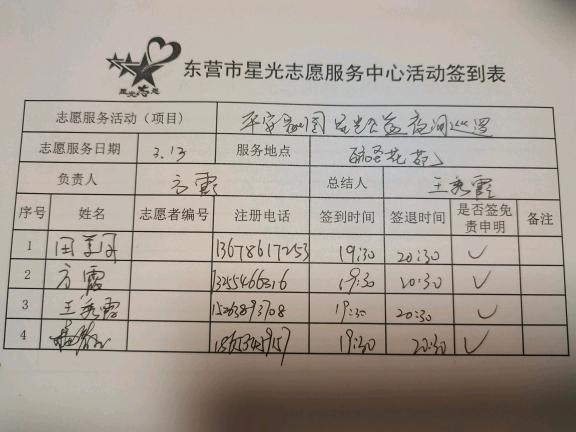 星光志愿
东营市星光志愿服务中心活动签到表
志愿服务活动（项目） 平安 星光公益夜间巡逻
志愿服务日期 3.13 服务地点
负责人 方霞 总结人 王秀霞
序号 姓名 志愿者编号 注册电话 签到时间 签退时间 是否签免责申明 备注
1 13678617253 19:30 20:30 ✓
2 方霞 13255466216 19:30 20:30 ✓
3 王秀霞 15263893708 19:30 20:30 ✓
4 19:30 20:30 ✓